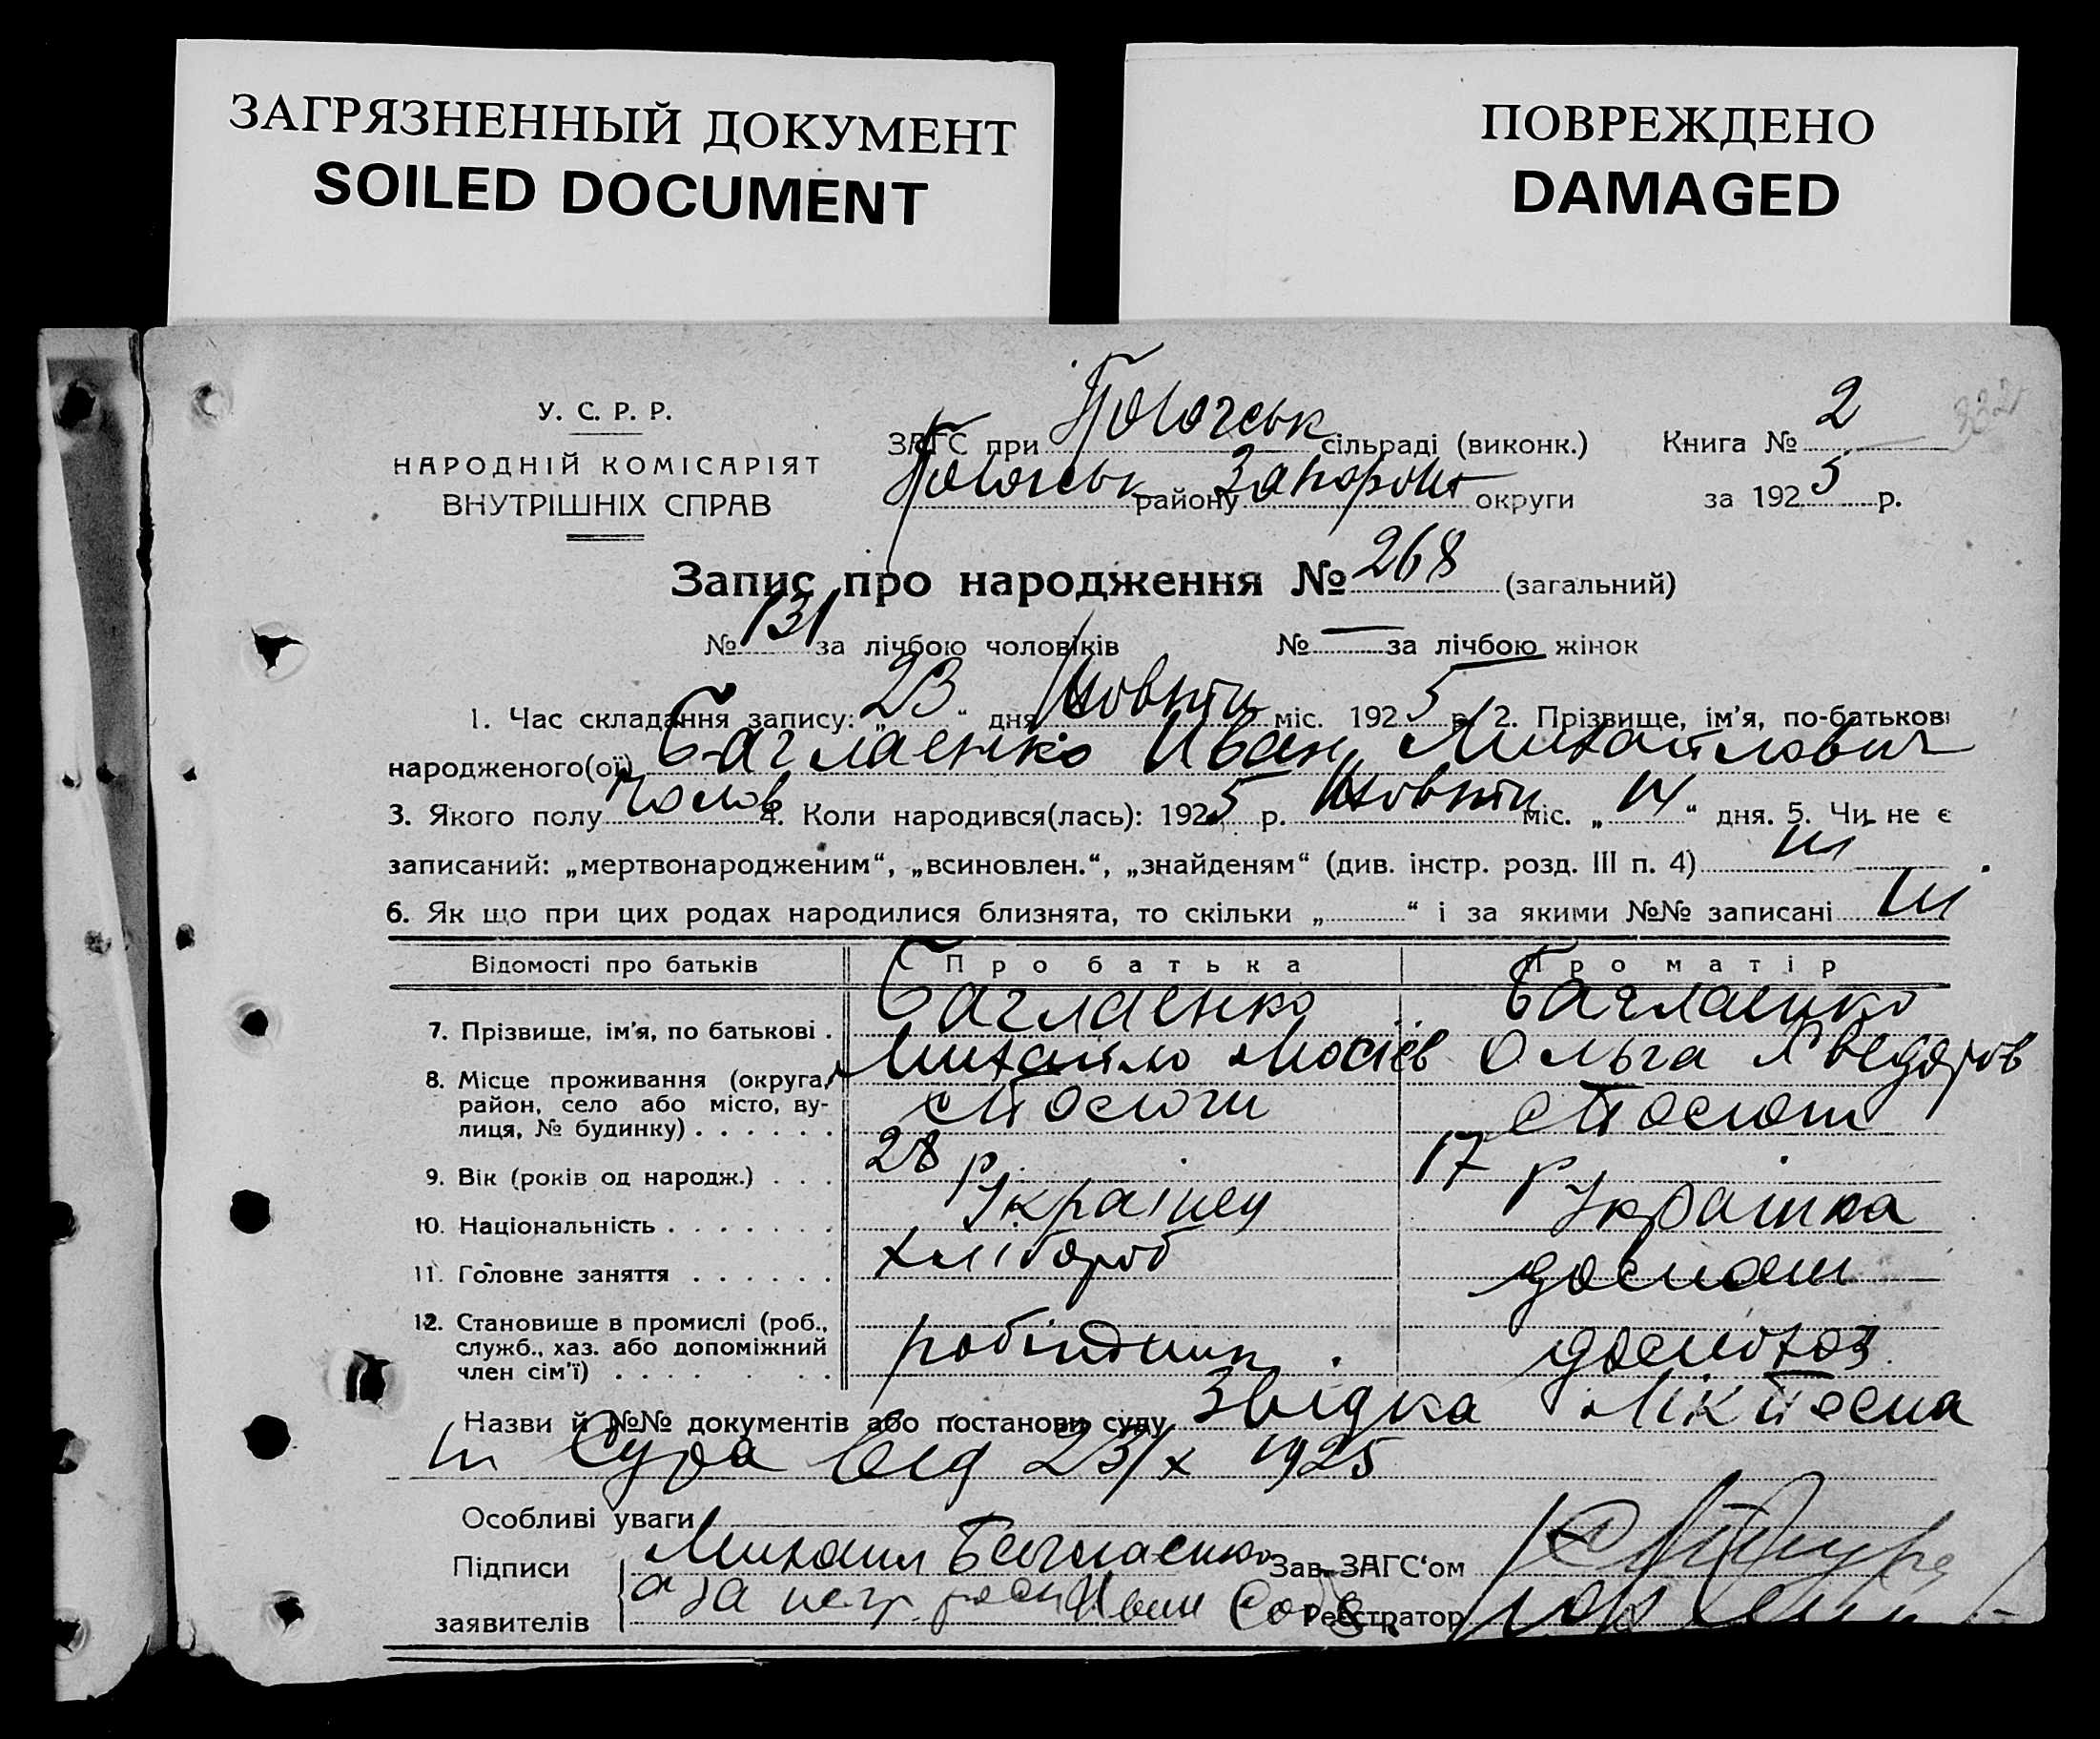 ЗАГРЯЗНЕННЫЙ ДОКУМЕНТ
SOILED DOCUMENT
ПОВРЕЖДЕНО
DAMAGED
У. С. Р. Р.
НАРОДНІЙ КОМІСАРІЯТ
ВНУТРІШНІХ СПРАВ
ЗАГС при Пологськ сільраді (виконк.) Книга № 2
Пологськ району Запоріж округи за 1925 р.
Запис про народження № 268 (загальний)
№ 131 за лічбою чоловіків № — за лічбою жінок
1. Час складання запису: „23“ дня Жовтн міс. 1925 р. 2. Прізвище, ім’я, по-батькові
народженого(ої) Баглаенко Иван Михайлович
3. Якого полу Чолов 4. Коли народився(лась): 1925 р. Жовтн міс. „14“ дня. 5. Чи не є
записаний: „мертвонародженим“, „всиновлен.“, „знайденям“ (див. інстр. розд. III п. 4) ні
6. Як що при цих родах народилися близнята, то скільки „ “ і за якими №№ записані ні
Відомості про батьків Про батька Про матір
7. Прізвище, ім’я, по батькові . Баглаенко Михайло Мосієв Баглаенко Ольга
8. Місце проживання (округа, район, село або місто, вулиця, № будинку) . . . . . .
9. Вік (років од народж.) . . . 28 р 17 р
10. Національність . . . . . . . Украінец Украінка
11. Головне заняття . . . . . . хлібороб
12. Становище в промислі (роб., служб., хаз. або допоміжний член сім’ї) . . . . . . . робітник
Назви й №№ документів або постанови суду Звідка
Суда від 23/X 1925
Особливі уваги
Підписи Михаил Баглаенко Зав. ЗАГС‘ом
заявителів а за негр Иван Реєстратор